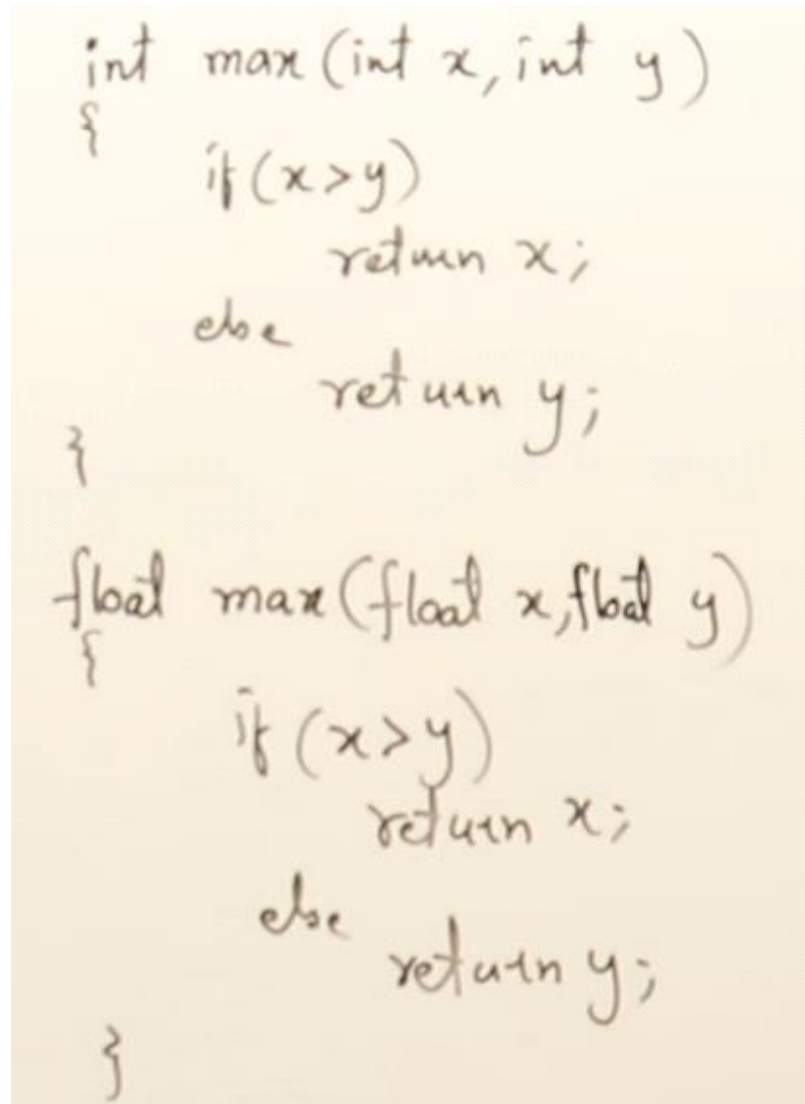 int max (int x, int y)
{
if (x>y)
return x;
else
return y;
}
float max (float x, float y)
{
if (x>y)
return x;
else
return y;
}